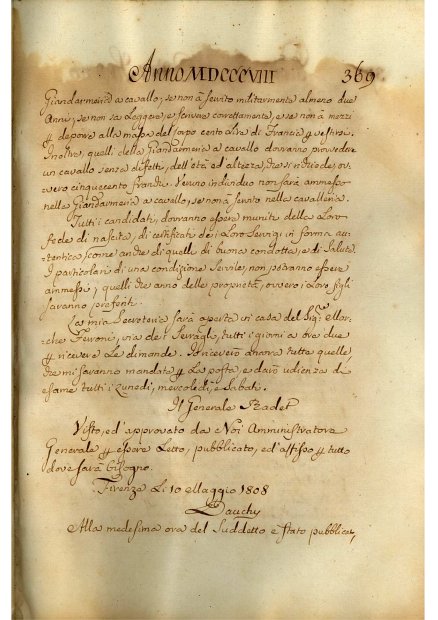 Anno MDCCCVIII 369
Giandarmeria a cavallo, se non à servito militarmente almeno due
Anni, se non sa Leggere, e scrivere correttamente, e se non à mezzi
di deporre alla massa del Corpo cento Lire di Francia
Inoltre, quelli della Giandarmeria a cavallo dovranno provveder
un cavallo senza difetti, dell'età ed altezza, che si richiede, ov
vero cinquecento franchi. Veruno individuo non sarà ammesso
nella Giandarmeria a cavallo, se non à servito nella cavalleria.
Tutti i candidati, dovranno essere muniti della Loro
fede di nascita, di certificati dei Loro Servigi in forma au-
tentica, come anche di quelli di buona condotta, e di Salute.
I particolari di una condizione Servile, non potranno essere
ammessi, quelli che anno delle proprietà, ovvero i Loro figli
saranno preferiti.
La mia Secreteria sarà aperta in casa del Sigre. Mar-
chese Feroni, via dei Serragli, tutti i giorni a ore due
per ricevere Le dimande. Io riceverò ancora tutte quelle,
che mi saranno mandate per La posta, e darò udienza di
esame tutti i Lunedì, mercoledì, e Sabati.
Il Generale Radet
Visto, ed approvato da Noi Amministratore
Generale per essere Letto, pubblicato, ed affisso per tutto
dove sarà bisogno.
Firenze Li 10 Maggio 1808
Dauchy
Alla medesima ora del Suddetto è stato pubblicat,